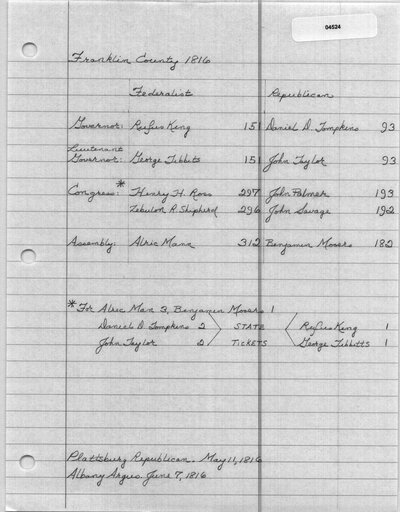 04524
Franklin County 1816
Federalist Republican
Governor: Rufus King 151 Daniel D. Tompkins 93
Lieutenant
Governor: George Tibbits 151 John Taylor 93
Congress:* Henry H. Ross 297 John Palmer 193
Zebulon R. Shipherd 296 John Savage 192
Assembly: Alric Mann 312 Benjamin Moses 182
*For Alric Man 3, Benjamin Mosers 1
Daniel D. Tompkins 2 STATE Rufus King 1
John Taylor 2 TICKETS George Tibbitts 1
Plattsburg Republican. May 11, 1816
Albany Argus. June 7, 1816